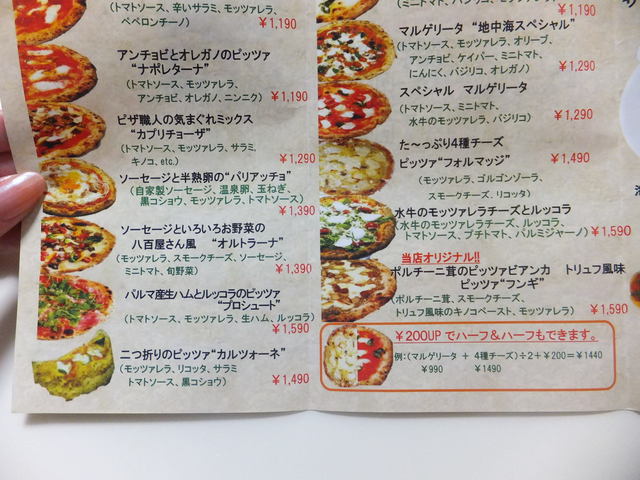 (トマトソース、辛いサラミ、モッツァレラ、
ペペロンチーノ) ¥1,190
アンチョビとオレガノのピッツァ
"ナポレターナ"
(トマトソース、モッツァレラ、
アンチョビ、オレガノ、ニンニク) ¥1,190
ピザ職人の気まぐれミックス
"カプリチョーザ"
(トマトソース、モッツァレラ、サラミ、
キノコ、etc.) ¥1,290
ソーセージと半熟卵の"パリアッチョ"
(自家製ソーセージ、温泉卵、玉ねぎ、
黒コショウ、モッツァレラ、トマトソース)
¥1,390
ソーセージといろいろお野菜の
八百屋さん風 "オルトラーナ"
(モッツァレラ、スモークチーズ、ソーセージ、
ミニトマト、旬野菜) ¥1,390
パルマ産生ハムとルッコラのピッツァ
"プロシュート"
(トマトソース、モッツァレラ、生ハム、ルッコラ)
¥1,590
二つ折りのピッツァ"カルツォーネ"
(モッツァレラ、リコッタ、サラミ
トマトソース、黒コショウ) ¥1,490
¥1,190
マルゲリータ "地中海スペシャル"
(トマトソース、モッツァレラ、オリーブ、
アンチョビ、ケイパー、ミニトマト、
にんにく、バジリコ、オレガノ) ¥1,290
スペシャル マルゲリータ
(トマトソース、ミニトマト、
水牛のモッツァレラ、バジリコ) ¥1,290
た〜っぷり4種チーズ
ピッツァ"フォルマッジ" ¥1,490
(モッツァレラ、ゴルゴンゾーラ、
スモークチーズ、リコッタ)
水牛のモッツァレラチーズとルッコラ
(水牛のモッツァレラチーズ、ルッコラ、
トマトソース、プチトマト、パルミジャーノ) ¥1,590
当店オリジナル!!
ポルチーニ茸のピッツァビアンカ トリュフ風味
ピッツァ"フンギ"
(ポルチーニ茸、スモークチーズ、
トリュフ風味のキノコペースト、モッツァレラ) ¥1,590
¥200UPでハーフ&ハーフもできます。
例:(マルゲリータ + 4種チーズ)÷2+¥200=¥1440
¥990 ¥1490